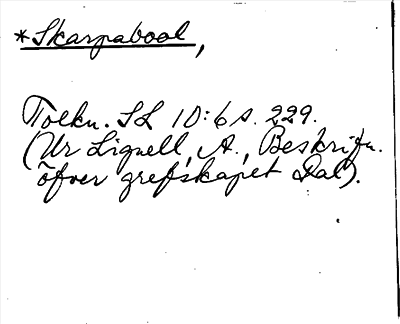 *Skarpabool,
Tolkn. SL 10:6 s. 229.
(Ur Lignell, A., Beskrifn.
öfver grefskapet Dal).